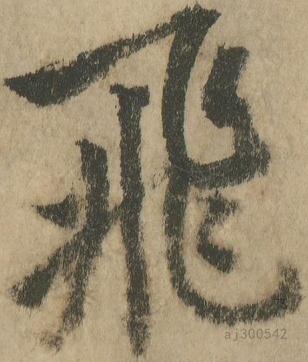 飛
aj300542